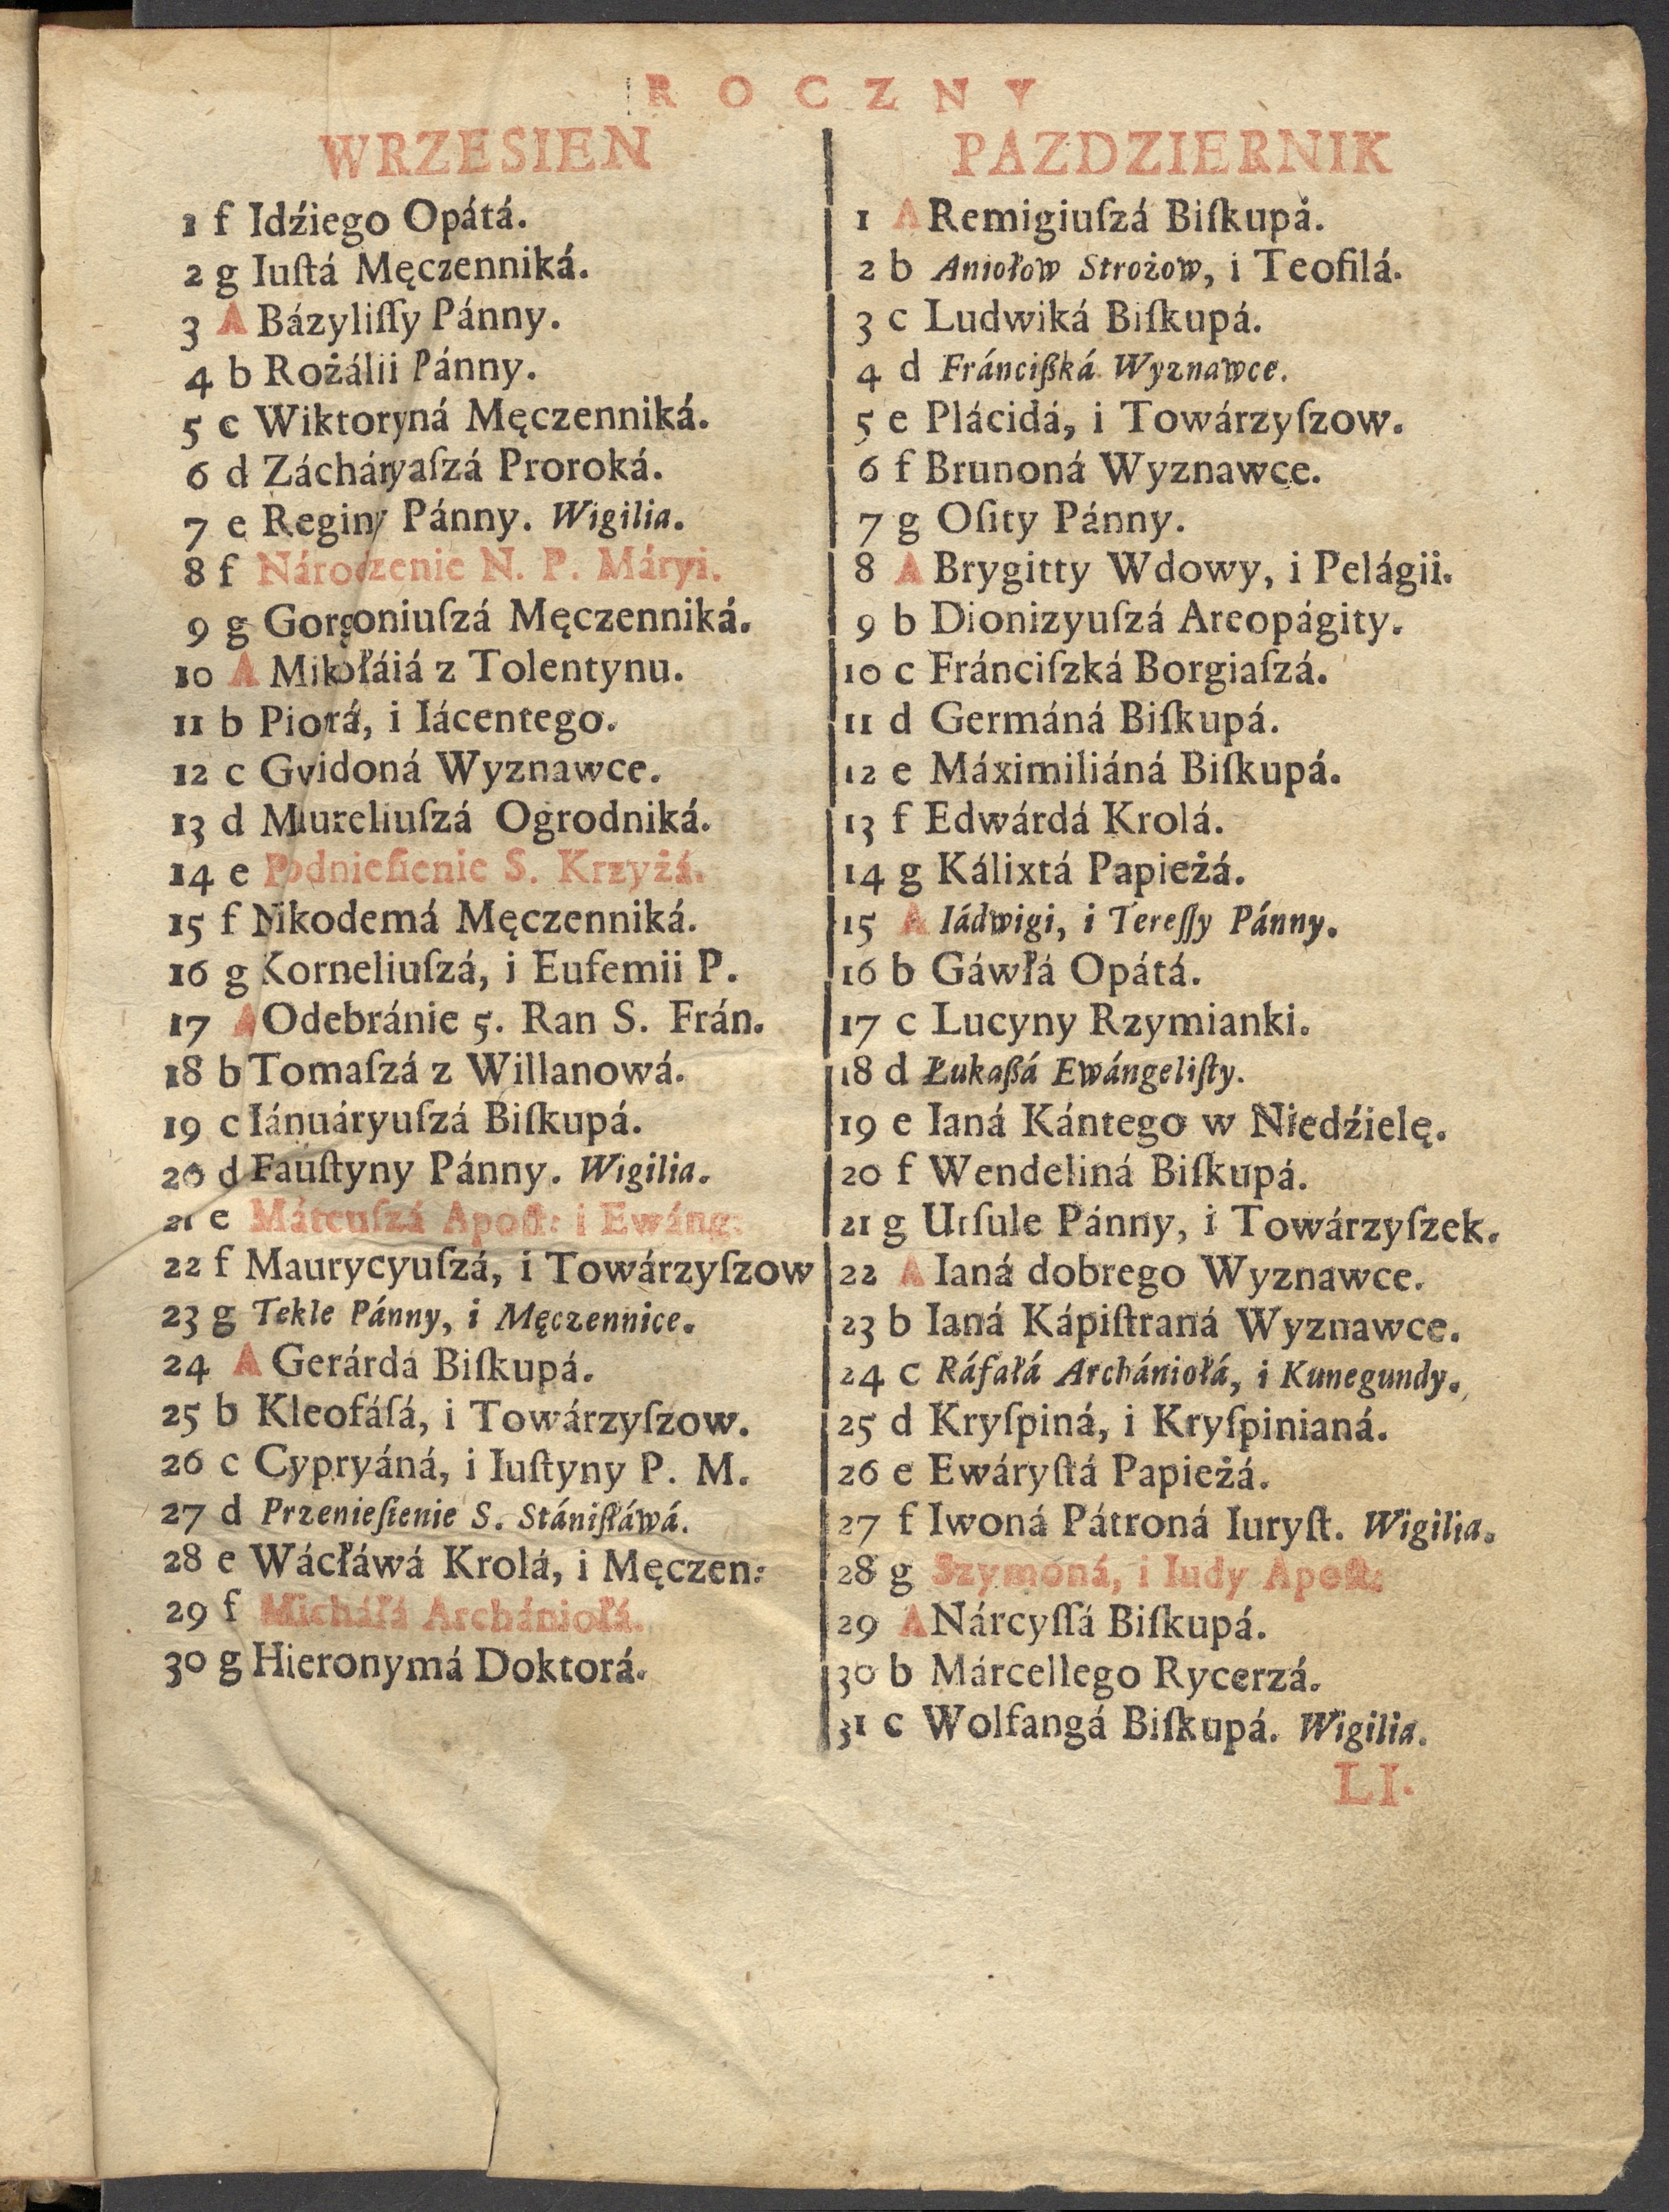 ROCZNY
WRZESIEN
1 f Idźiego Opátá.
2 g Iuſtá Męczenniká.
3 A Bázyliſſy Pánny.
4 b Rożálii Pánny.
5 c Wiktoryná Męczenniká.
6 d Zácháryaſzá Proroká.
7 e Reginy Pánny. Wigilia.
8 f Národzenie N. P. Máryi.
9 g Gorgoniuſzá Męczenniká.
10 A Mikołáiá z Tolentynu.
11 b Piotrá, i Iácentego.
12 c Gvidoná Wyznawce.
13 d Maureliuſzá Ogrodniká.
14 e Podnieſienie S. Krzyżá.
15 f Nikodemá Męczenniká.
16 g Korneliuſzá, i Eufemii P.
17 A Odebránie 5. Ran S. Frán.
18 b Tomaſzá z Willanowá.
19 c Iánuáryuſzá Biſkupá.
20 d Fauſtyny Pánny. Wigilia.
21 e Máteuſzá Apoſt: i Ewáng:
22 f Maurycyuſzá, i Towárzyſzow
23 g Tekle Pánny, i Męczennice.
24 A Gerárdá Biſkupá.
25 b Kleofáſá, i Towárzyſzow.
26 c Cypryáná, i Iuſtyny P. M.
27 d Przenieſienie S. Stániſłáwá.
28 e Wácłáwá Krolá, i Męczen:
29 f Micháłá Archániołá.
30 g Hieronymá Doktorá.
PAZDZIERNIK
1 A Remigiuſzá Biſkupá.
2 b Aniołow Strożow, i Teofilá.
3 c Ludwiká Biſkupá.
4 d Fráncißká Wyznawce.
5 e Plácidá, i Towárzyſzow.
6 f Brunoná Wyznawce.
7 g Oſity Pánny.
8 A Brygitty Wdowy, i Pelágii.
9 b Dionizyuſzá Areopágity.
10 c Fránciſzká Borgiaſzá.
11 d Germáná Biſkupá.
12 e Máximiliáná Biſkupá.
13 f Edwárdá Krolá.
14 g Kálixtá Papieżá.
15 A Iádwigi, i Tereſſy Pánny.
16 b Gáwłá Opátá.
17 c Lucyny Rzymianki.
18 d Łukaßá Ewángeliſty.
19 e Ianá Kántego w Niedźielę.
20 f Wendeliná Biſkupá.
21 g Urſule Pánny, i Towárzyſzek.
22 A Ianá dobrego Wyznawce.
23 b Ianá Kápiſtraná Wyznawce.
24 c Ráfałá Archániołá, i Kunegundy.
25 d Kryſpiná, i Kryſpinianá.
26 e Ewáryſtá Papieżá.
27 f Iwoná Pátroná Iuryſt. Wigilia.
28 g Szymoná, i Iudy Apoſt:
29 A Nárcyſſá Biſkupá.
30 b Márcellego Rycerzá.
31 c Wolfangá Biſkupá. Wigilia.
LI.